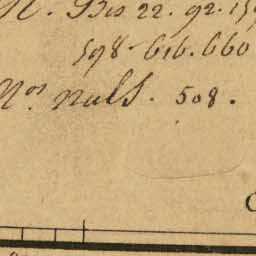 N. Bis 22. 92. 15
598. 616. 660
Nos. nuls. 508.